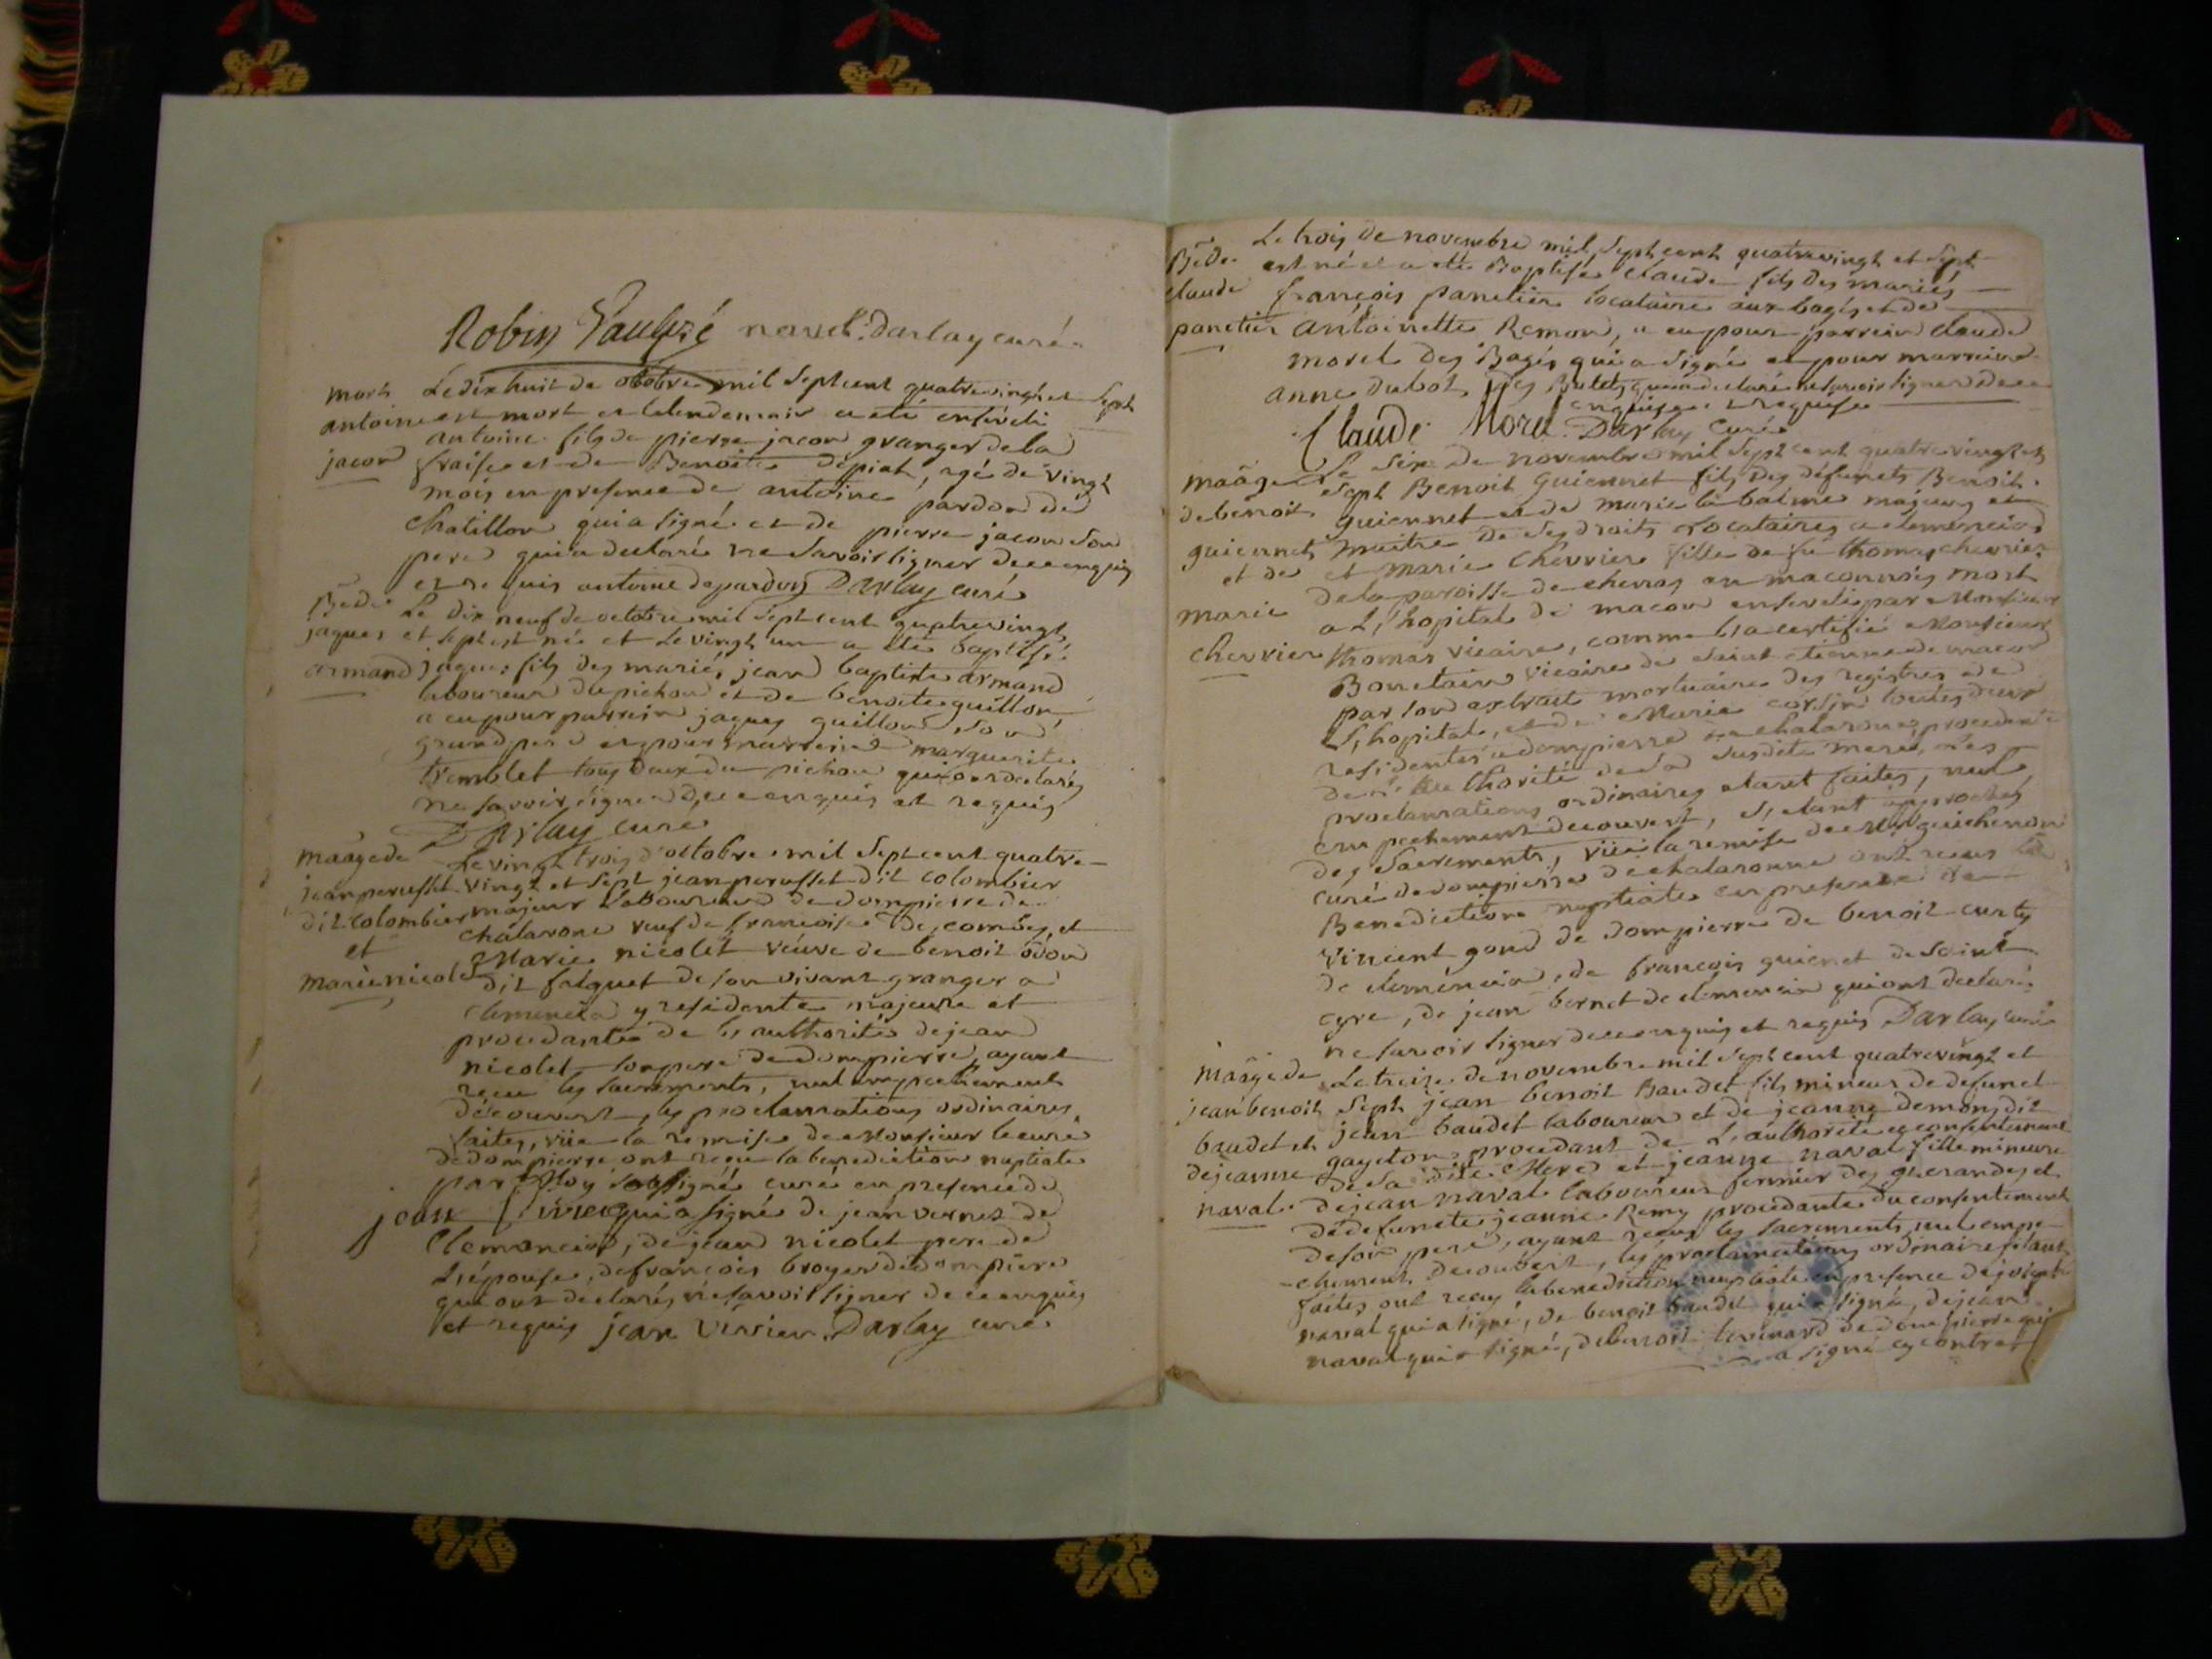 Robin navel. Darlay curé
mort Le dix huit de octobre mil sept cent quatre vingt et sept
antoine est mort et le lendemain a eté enséveli
antoine fils de pierre jacon granger de la
jacon fraise et de Benoite depiat, agé de vingt
mois en presence de antoine pardon de
Chatillon qui a signé et de pierre jacon son
pere qui a declaré ne savoir signer de ce enquis
et requis antoine depardon Darlay curé
Bê de Le dix neuf de octobre mil sept cent quatre vingt
jaques et sept est né et le vingt un a eté baptisé
armand jaques fils des mariés jean baptiste armand
laboureur du pichon et de benoite guillon,
a eu pour parrein jaques guillon son
grand pere et pour marreine marguerite
tremblet tous deux du pichon qui ont declarés
ne savoir signer de ce enquis et requis
Darlay curé
maâge de Le vingt trois d'octobre mil sept cent quatre
jean perusset vingt et sept jean perusset dit colombier
dit colombier majeur Laboureur de dompierre de
et chalarone veuf de francoise Des combes, et
Marie nicolet veuve de benoit
marie nicolet dit falquet de son vivant granger a
clemencia y residente majeure et
procedante de l, authorité de jean
nicolet son pere de dompierre, ayant
recu les sacrements, nul empechement
découvert, les proclamations ordinaires
faites, vüe la remise de Monsieur le curé
de dompierre ont recu la benediction nuptiale
par Moy soussigné curé en presence de
jean qui a signé de jean vernet de
Clemencia, de jean nicolet pere de
L,épouse, de françois broyer de dompierre
qui ont declarés ne savoir signer de ce enquis
et requis jean Darlay curé
Le trois de novembre mil sept cent quatre vingt et sept
Bê de est né et a eté Baptisé claude fils des mariés
claude françois panetier locataire aux bagés et de
panetier antoinette Remon, a eu pour parrein claude
morel des Bagés qui a signé et pour marreine
anne dubot des Butets qui a declaré ne savoir signer de ce
enquise et requise
Claude Morel Darlay Curé
maâge Le six de novembre mil sept cent quatre vingt et
de benoit sept Benoit guiennet fils des défunets Benoit
guiennet et de marie la balme majeur et
guiennet maitre de ses droits locataire a clemencia
et de et marie Chevrier fille de fû thomas chevrier
marie de la paroisse de chevras en maconnois mort
a L,hopital de macon enseveli par Monsieur
chevrier thomas vicaire, comme l,a certifié Monsieur
vicaire de saint etienne de macon
par son extrait mortuaire des registres de
L,hopital, et de Marie toutes deux
residentes a dompierre de chalarone, procedente
de l'authorité de sa susdite mere, Les
proclamations ordinaires etant faites, nul
empechement decouvert, s,etant approchés
des sacrements, vüe la remise de Mr guichenon
curé de dompierre de chalaronne ont recus la
Benediction nuptiale en presence de
vincent gond de dompierre de benoit curty
de clemencia, de francois guienet de saint
cyre, de jean bernet de clemencia qui ont declaré
ne savoir signer de ce enquis et requis Darlay curé
maâge de Le treize de novembre mil sept cent quatre vingt et
jean benoit sept jean benoit Baudet fils mineur de defunct
baudet et jean baudet laboureur et de jeanne demons dit
de jeanne gayeton procedant de L,authorité et consentement
de sa dite Mere et jeanne naval fille mineure
naval de jean naval laboureur fermier des et
de defuncte jeanne Remy procedante du consentement
de son pere, ayant recus les sacrements, nul empe-
-chement decouvert, les proclamations ordinaires etant
faites ont recus la benediction nuptiale en presence de
naval qui a signé, de benoit baudet qui a signé, de jean
naval qui a signé, de benoit de dompierre qui
a signé cy contre